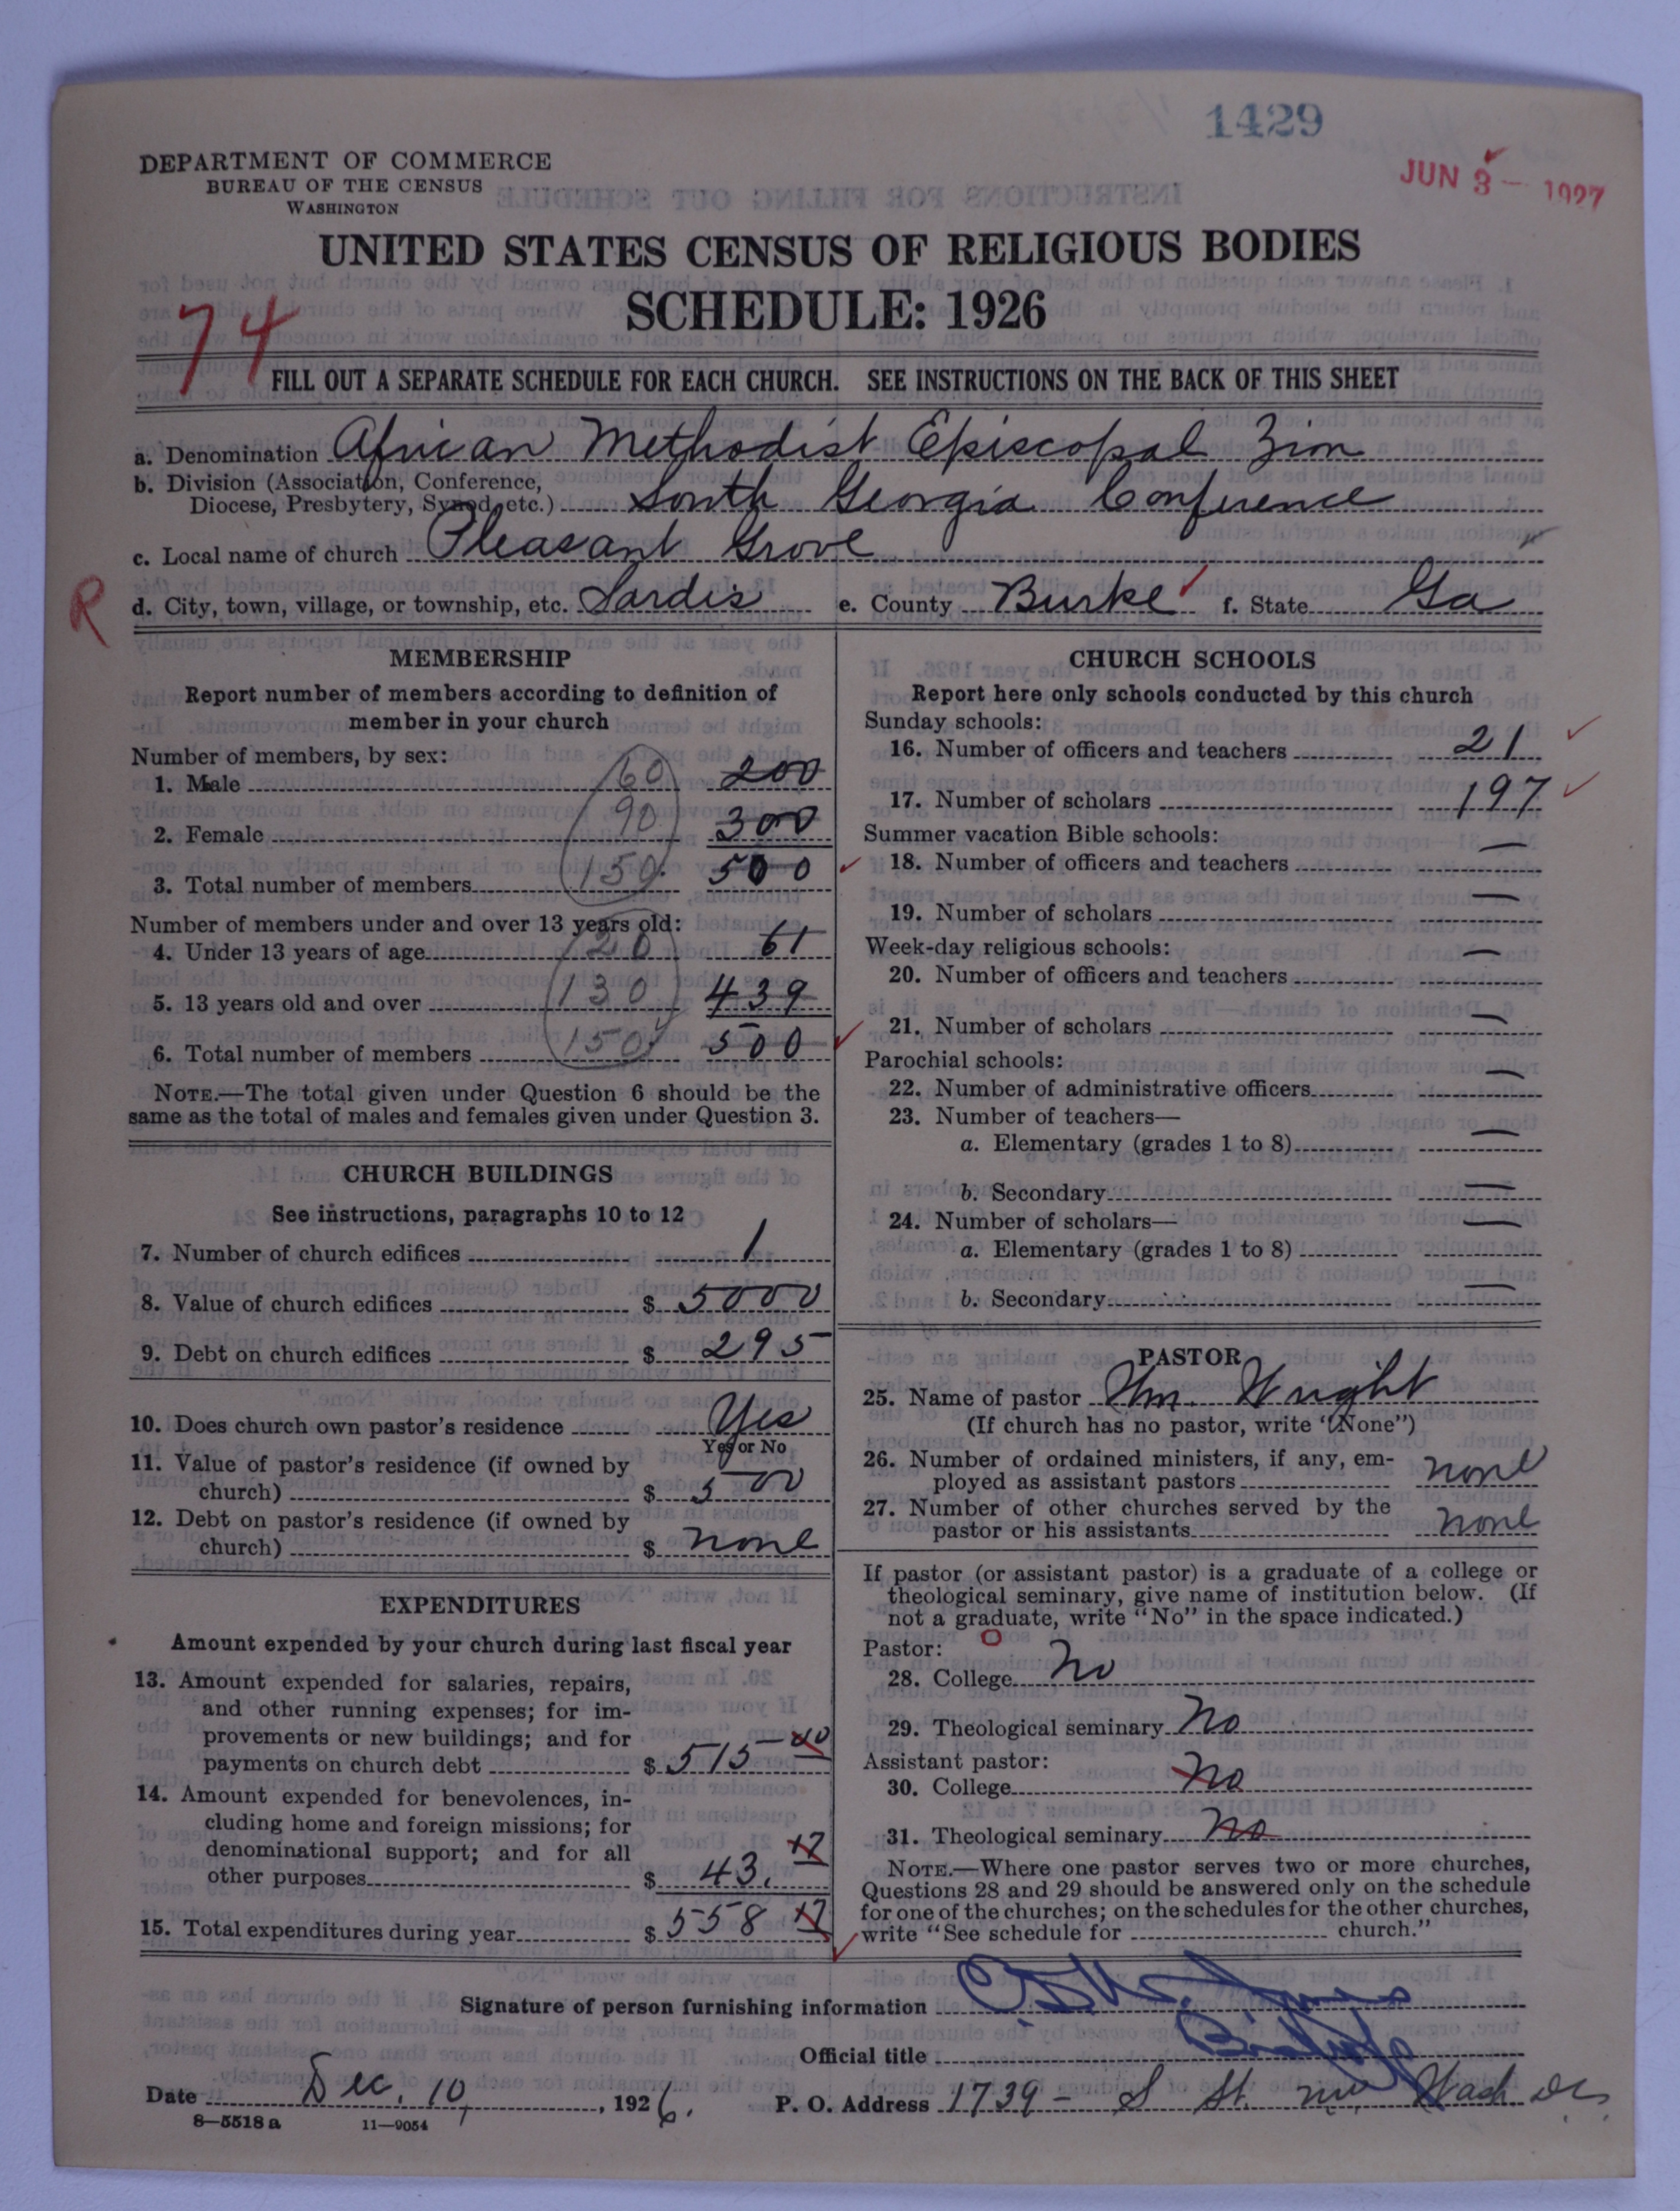 1429
JUN 3 - 1927
DEPARTMENT OF COMMERCE
BUREAU OF THE CENSUS
WASHINGTON
UNITED STATES CENSUS OF RELIGIOUS BODIES
SCHEDULE: 1926
74
FILL OUT A SEPARATE SCHEDULE FOR EACH CHURCH. SEE INSTRUCTIONS ON THE BACK OF THIS SHEET
a. Denomination African Methodist Episcopal Zion
b. Division (Association, Conference,
Diocese, Presbytery, Synod, etc.) South Georgia Conference
c. Local name of church Pleasant Grove
R
d. City, town, village, or township, etc. Sardis e. County Burke f. State Ga
MEMBERSHIP
Report number of members according to definition of
member in your church
Number of members, by sex:
1. Male 60 200
2. Female 90 300
3. Total number of members 150 500
Number of members under and over 13 years old:
4. Under 13 years of age 20 61
5. 13 years old and over 130 439
6. Total number of members 150 500
NOTE.—The total given under Question 6 should be the
same as the total of males and females given under Question 3.
CHURCH BUILDINGS
See instructions, paragraphs 10 to 12
7. Number of church edifices 1
8. Value of church edifices $ 5000
9. Debt on church edifices $ 295
10. Does church own pastor's residence Yes
Yes or No
11. Value of pastor's residence (if owned by
church) $ 500
12. Debt on pastor's residence (if owned by
church) $ none
EXPENDITURES
Amount expended by your church during last fiscal year
13. Amount expended for salaries, repairs,
and other running expenses; for im-
provements or new buildings; and for
payments on church debt $ 515
14. Amount expended for benevolences, in-
cluding home and foreign missions; for
denominational support; and for all
other purposes $ 43.
15. Total expenditures during year $ 558
CHURCH SCHOOLS
Report here only schools conducted by this church
Sunday schools:
16. Number of officers and teachers 21
17. Number of scholars 197
Summer vacation Bible schools:
18. Number of officers and teachers —
19. Number of scholars —
Week-day religious schools:
20. Number of officers and teachers —
21. Number of scholars —
Parochial schools:
22. Number of administrative officers —
23. Number of teachers—
a. Elementary (grades 1 to 8) —
b. Secondary —
24. Number of scholars—
a. Elementary (grades 1 to 8) —
b. Secondary —
PASTOR
25. Name of pastor Wm. Wright
(If church has no pastor, write "None")
26. Number of ordained ministers, if any, em-
ployed as assistant pastors none
27. Number of other churches served by the
pastor or his assistants none
If pastor (or assistant pastor) is a graduate of a college or
theological seminary, give name of institution below. (If
not a graduate, write "No" in the space indicated.)
Pastor:
28. College No
29. Theological seminary No
Assistant pastor:
30. College No
31. Theological seminary No
NOTE.—Where one pastor serves two or more churches,
Questions 28 and 29 should be answered only on the schedule
for one of the churches; on the schedules for the other churches,
write "See schedule for church."
Signature of person furnishing information
Official title Bishop
Date Dec. 10, 1926. P. O. Address 1739 - S St. nw Wash. DC.
8—5518 a 11—9054